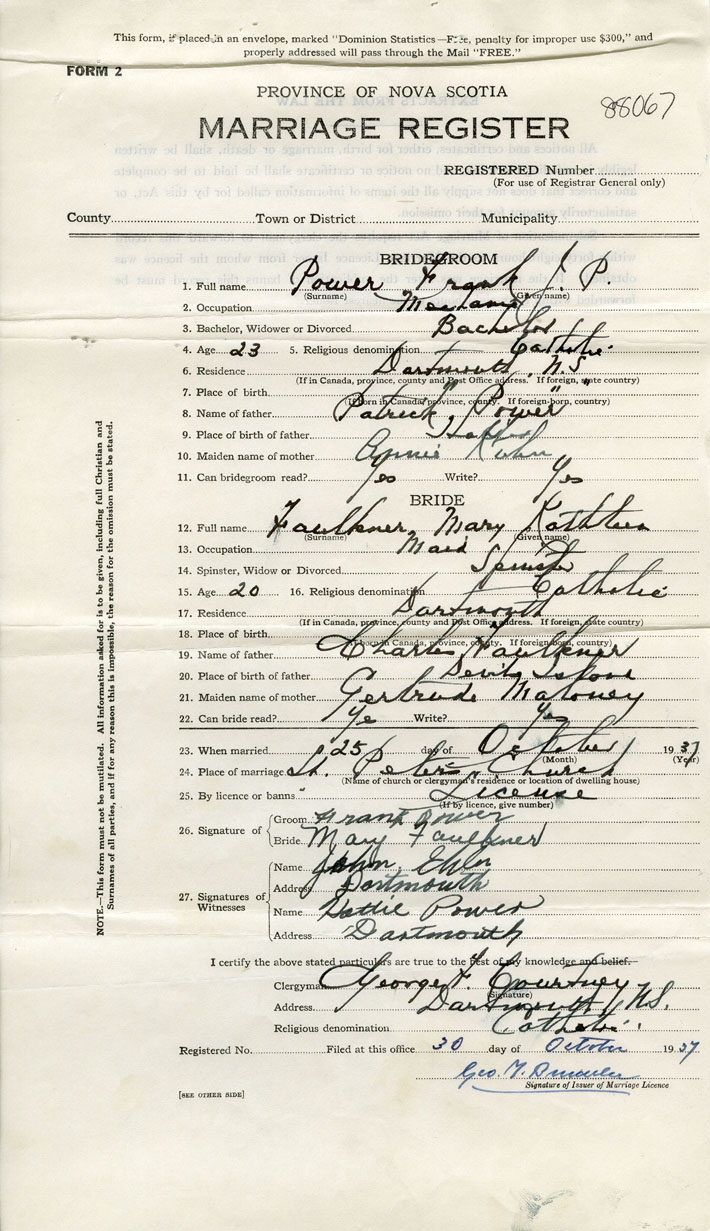 This form, if placed in an envelope, marked "Dominion Statistics—Free, penalty for improper use $300," and
properly addressed will pass through the Mail "FREE."
FORM 2
PROVINCE OF NOVA SCOTIA
88067
MARRIAGE REGISTER
REGISTERED Number
(For use of Registrar General only)
County Town or District Municipality
BRIDEGROOM
1. Full name Power Frank J. P.
(Surname) (Given name)
2. Occupation Mechanic
3. Bachelor, Widower or Divorced Bachelor
4. Age 23 5. Religious denomination Catholic
6. Residence Dartmouth, N.S
(If in Canada, province, county and Post Office address. If foreign, state country)
7. Place of birth " "
(If born in Canada, province, county. If foreign-born, country)
8. Name of father Patrick Power
9. Place of birth of father
10. Maiden name of mother Annie
11. Can bridegroom read? Yes Write? Yes
BRIDE
12. Full name Faulkner Mary Kathleen
(Surname) (Given name)
13. Occupation Maid
14. Spinster, Widow or Divorced Spinster
15. Age 20 16. Religious denomination Catholic
17. Residence Dartmouth
(If in Canada, province, county and Post Office address. If foreign, state country)
18. Place of birth
(If born in Canada, province, county. If foreign-born, country)
19. Name of father Charles Faulkner
20. Place of birth of father Devils Island
21. Maiden name of mother Gertrude Maloney
22. Can bride read? Yes Write? Yes
23. When married 25 day of October 1937
(Month) (Year)
24. Place of marriage St. Peter's Church
(Name of church or clergyman's residence or location of dwelling house)
25. By licence or banns License
(If by licence, give number)
26. Signature of Groom Frank Power
Bride Mary Faulkner
27. Signatures of Witnesses Name John
Address Dartmouth
Name Hattie Power
Address Dartmouth
I certify the above stated particulars are true to the best of my knowledge and belief.
Clergyman George F. Courtney
(Signature)
Address Dartmouth, N.S.
Religious denomination Catholic
Registered No. Filed at this office 30 day of October 1937
Geo.
Signature of Issuer of Marriage Licence
[SEE OTHER SIDE]
NOTE.—This form must not be mutilated. All information asked for is to be given, including full Christian and
Surnames of all parties, and if for any reason this is impossible, the reason for the omission must be stated.